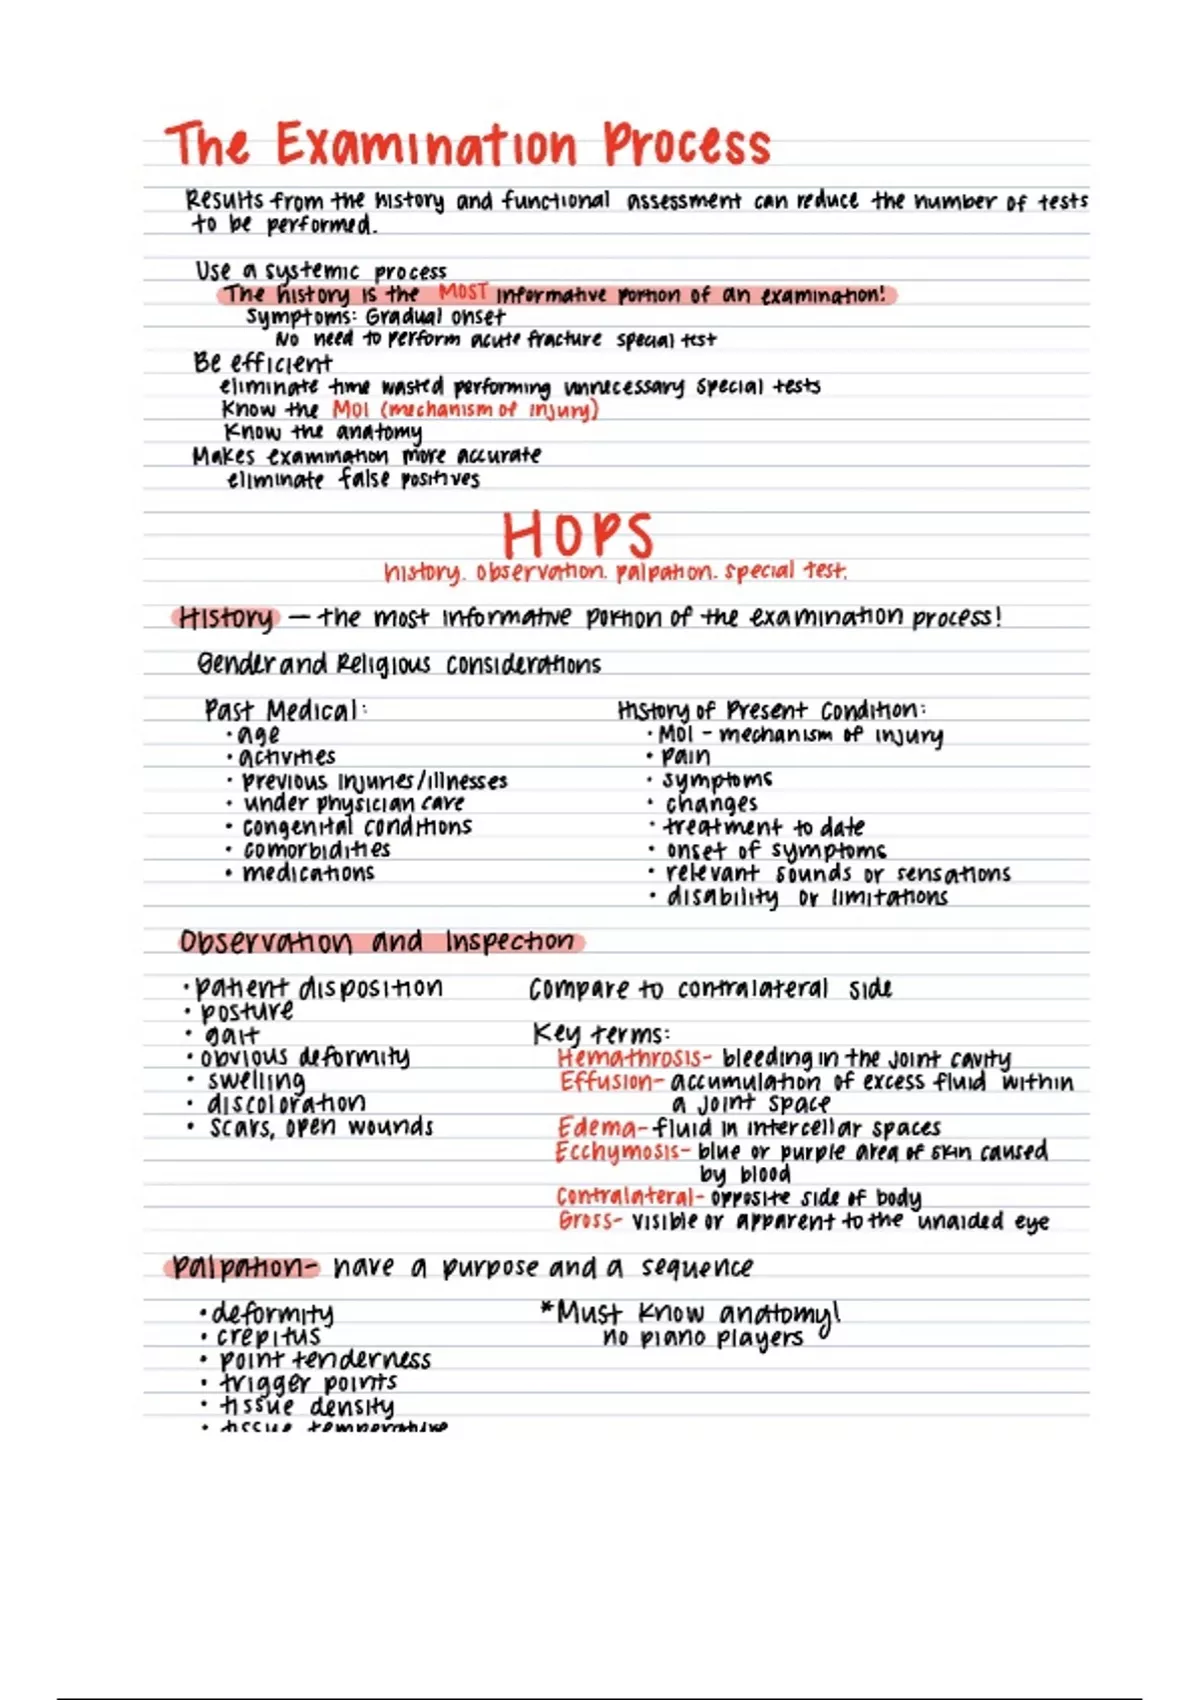 The Examination Process
Results from the history and functional assessment can reduce the number of tests
to be performed.
Use a systemic process
The history is the MOST informative portion of an examination!
Symptoms: Gradual onset
No need to perform acute fracture special test
Be efficient
eliminate time wasted performing unnecessary special tests
Know the MOI (mechanism of injury)
Know the anatomy
Makes examination more accurate
eliminate false positives
HOPS
history. observation. palpation. special test.
History – the most informative portion of the examination process!
Gender and Religious considerations
Past Medical:
• age
• activities
• previous injuries/illnesses
• under physician care
• congenital conditions
• comorbidities
• medications
History of Present Condition:
• MOI - mechanism of injury
• pain
• symptoms
• changes
• treatment to date
• onset of symptoms
• relevant sounds or sensations
• disability or limitations
Observation and Inspection
• patient disposition
• posture
• gait
• obvious deformity
• swelling
• discoloration
• scars, open wounds
Compare to contralateral side
Key terms:
Hemathrosis- bleeding in the joint cavity
Effusion- accumulation of excess fluid within
a joint space
Edema- fluid in intercellar spaces
Ecchymosis- blue or purple area of skin caused
by blood
Contralateral- opposite side of body
Gross- visible or apparent to the unaided eye
Palpation- have a purpose and a sequence
• deformity
• crepitus
• point tenderness
• trigger points
• tissue density
• tissue temperature
*Must know anatomy!
no piano players